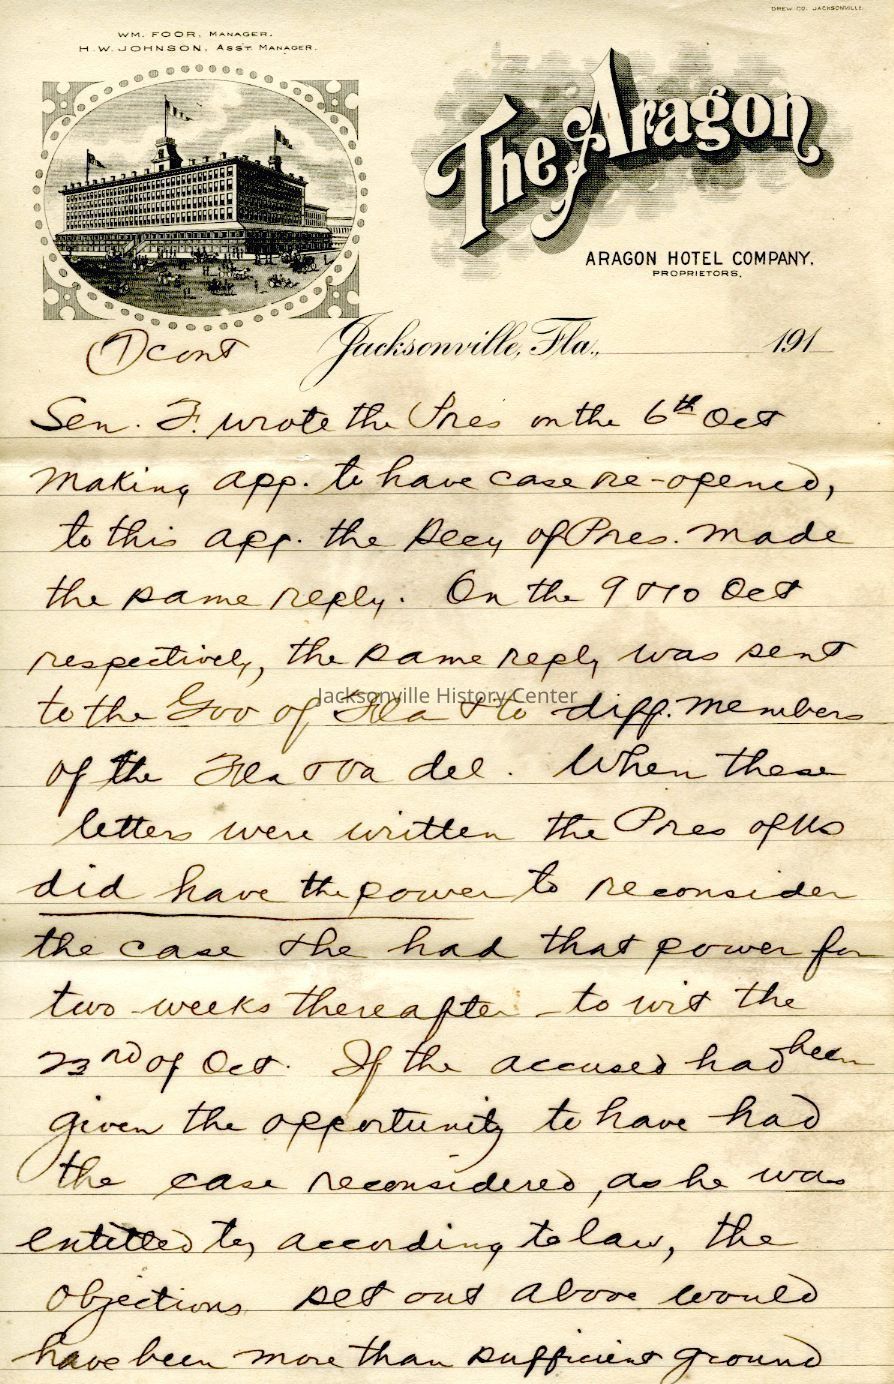 DREW CO. JACKSONVILLE.
WM. FOOR, MANAGER.
H. W. JOHNSON, ASST. MANAGER.
The Aragon
ARAGON HOTEL COMPANY.
PROPRIETORS.
① cont
Jacksonville, Fla., 191
Sen. F. wrote the Pres on the 6th Oct
making app. to have case re-opened,
to this app. the Secy of Pres. made
the same reply. On the 9 & 10 Oct
respectively, the same reply was sent
to the Gov of Fla & to diff. members
Jacksonville History Center
of the Fla & Va del. When these
letters were written the Pres of US
did have the power to reconsider
the case & he had that power for
two weeks thereafter - to wit the
23rd of Oct. If the accused had been
given the opportunity to have had
the case reconsidered, as he was
entitled to, according to law, the
objections set out above would
have been more than sufficient ground